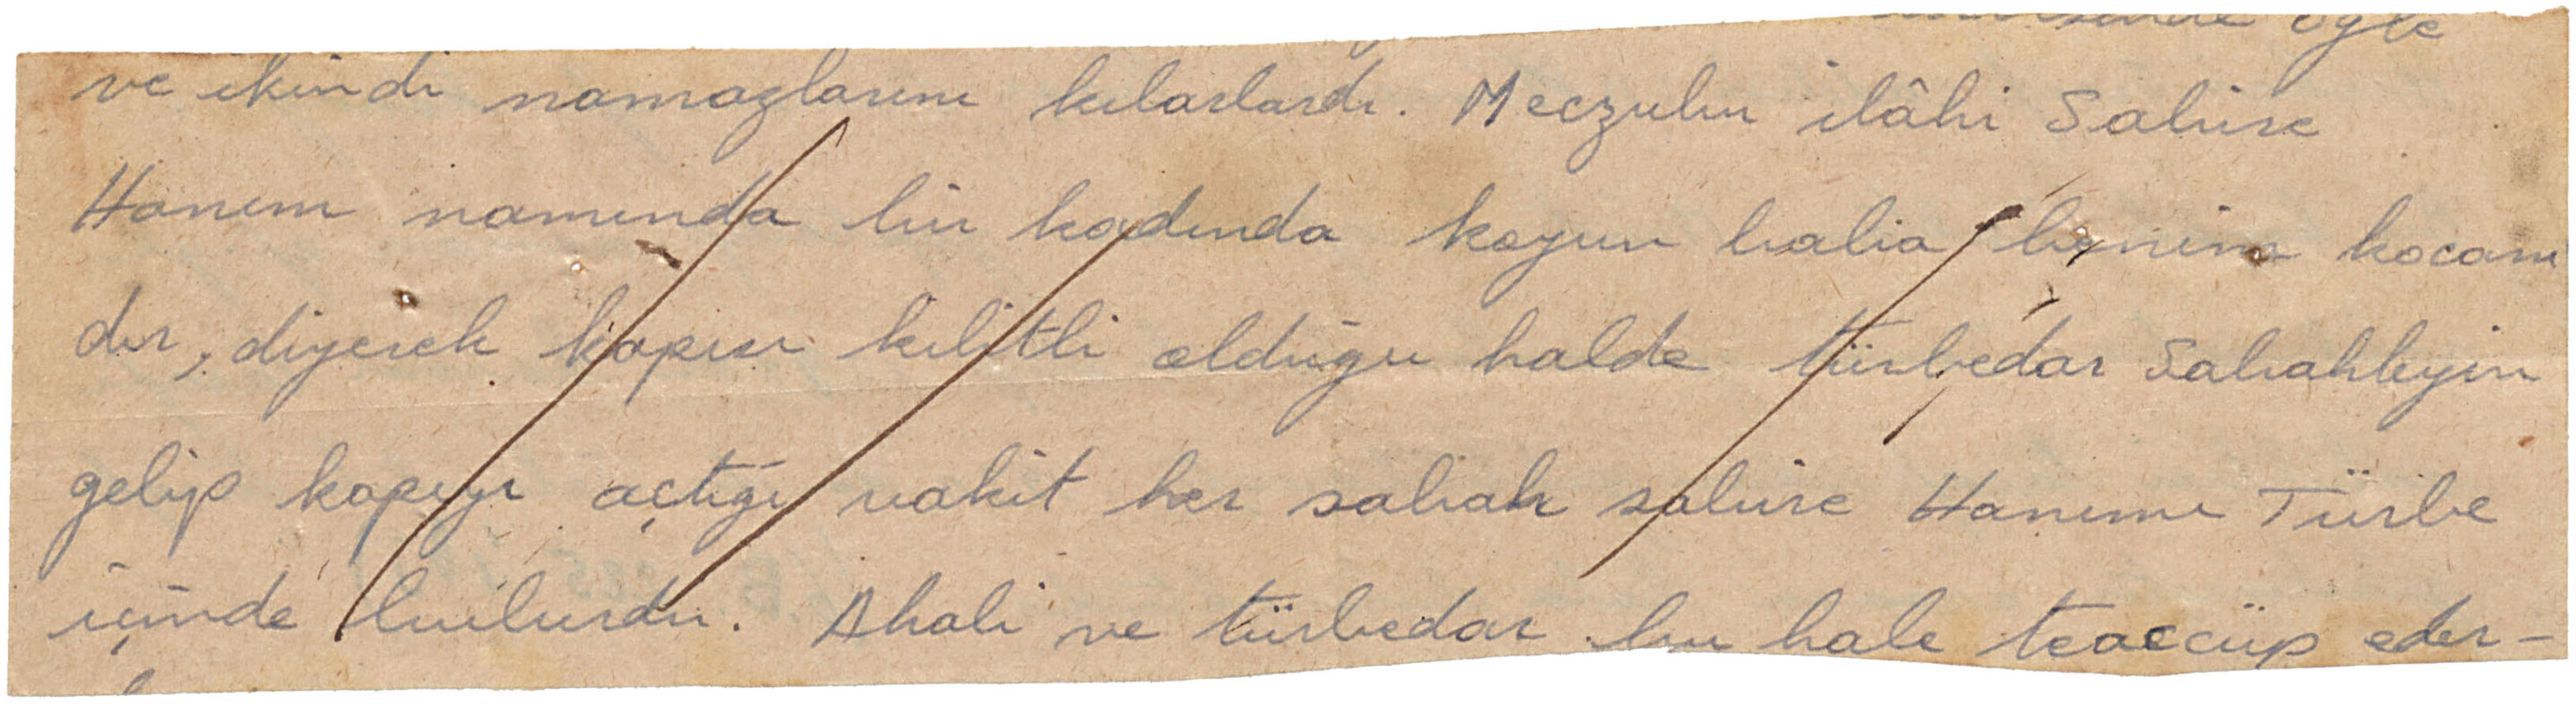 öyle
ve ikindi namazlarını kılarlardı. Meczubu ilâhi Sabire
Hanım namında bir kadında koyun baba benim kocam
dır, diyerek kapısı kilitli olduğu halde türbedar sabahleyin
gelip kapıyı açtığı vakit her sabah sabire Hanımı Türbe
içinde bulurdu. Ahali ve türbedar bu hale teaccüp eder-